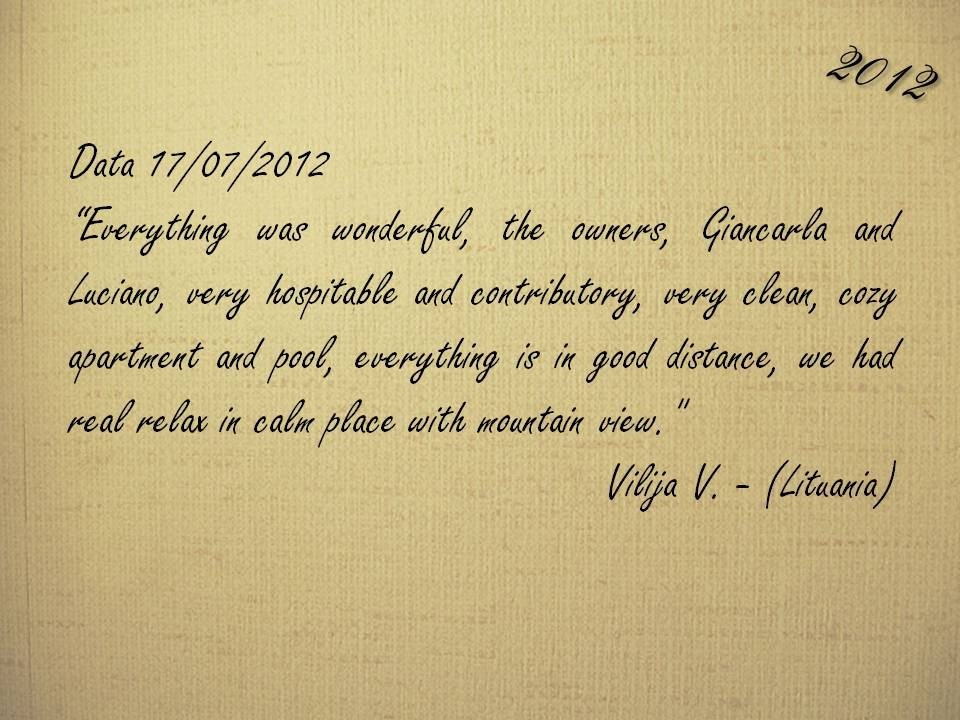 2012
Data 17/07/2012
"Everything was wonderful, the owners, Giancarla and
Luciano, very hospitable and contributory, very clean, cozy
apartment and pool, everything is in good distance, we had
real relax in calm place with mountain view."
Vilija V. - (Lituania)